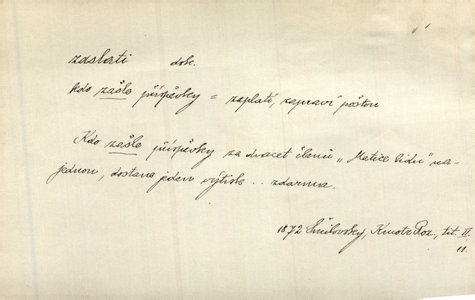 zaslati dok.
kdo zašle příspěvky = zaplatí, zapraví poštou
Kdo zašle příspěvky za dvacet členů „Matice lidu" na-
jednou, dostane jeden výtisk .. zdarma.
1872 Šmilovský, Kmotr Roz., tit. II.